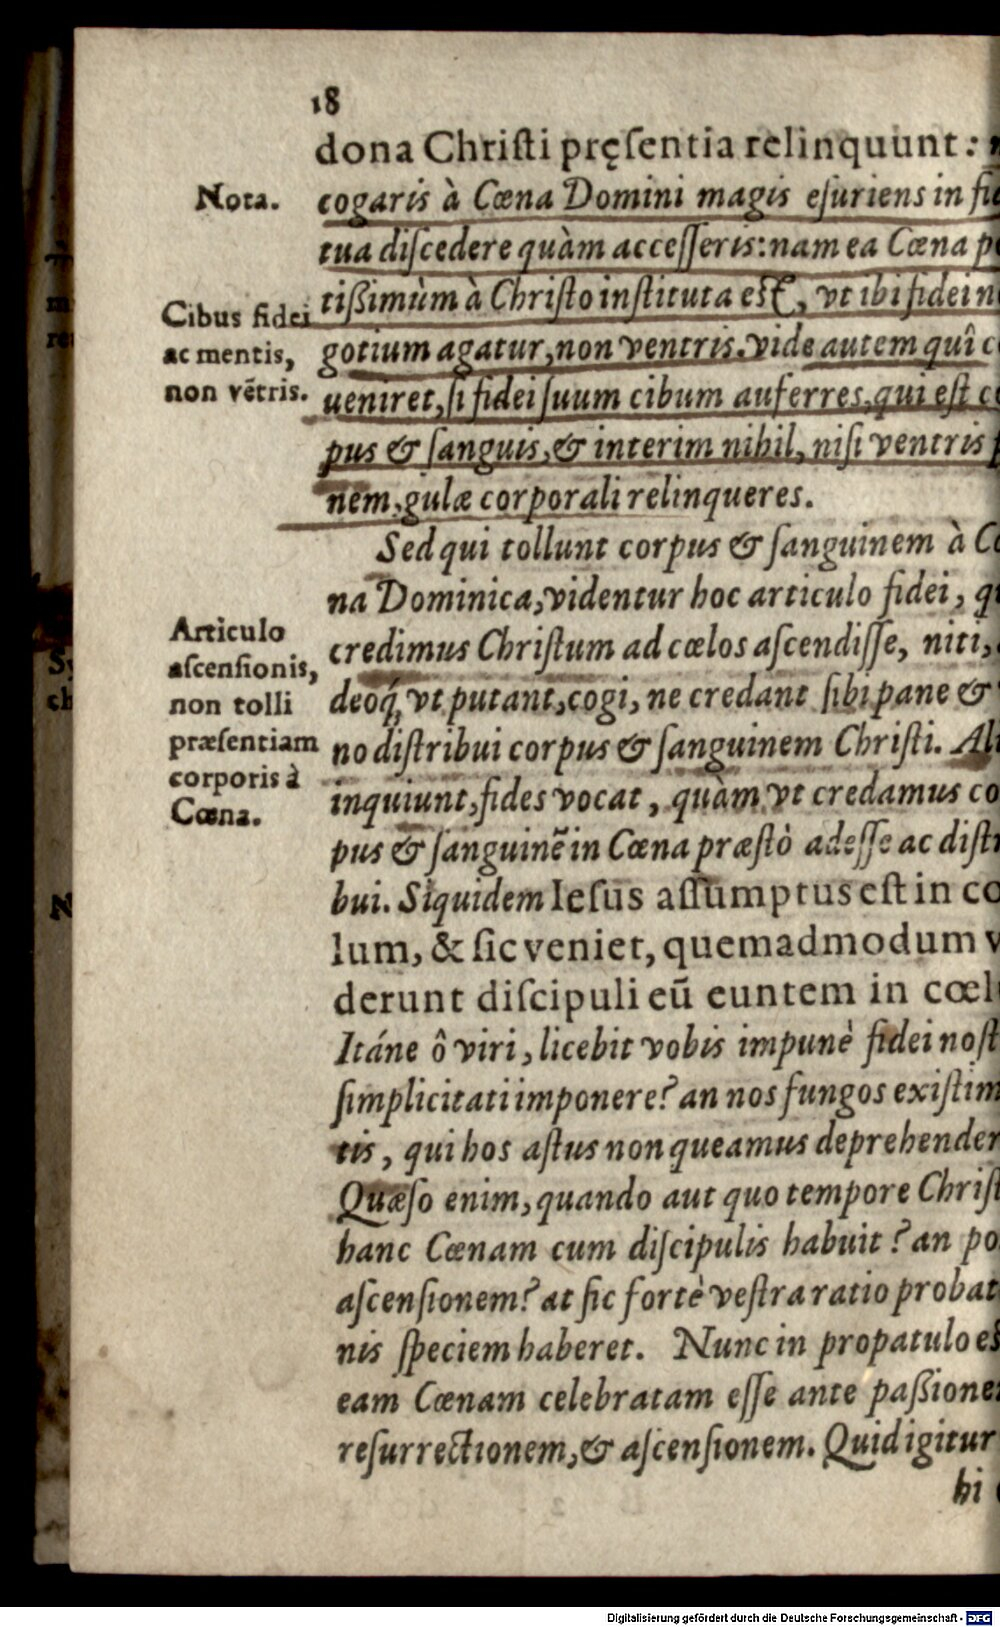 18
dona Christi pręsentia relinquunt:
Nota.
cogaris à Cœna Domini magis esuriens in
tua discedere quàm accesseris: nam ea Cœna
tißimùm à Christo instituta est, vt ibi fidei
Cibus fidei
ac mentis,
non vētris.
gotium agatur, non ventris. vide autem quî
ueniret, si fidei suum cibum auferres, qui est
pus & sanguis, & interim nihil, nisi ventris
nem, gulæ corporali relinqueres.
Sed qui tollunt corpus & sanguinem à
na Dominica, videntur hoc articulo fidei,
Articulo
ascensionis,
non tolli
præsentiam
corporis à
Cœna.
credimus Christum ad cœlos ascendisse, niti,
deoq́, vt putant, cogi, ne credant sibi pane &
no distribui corpus & sanguinem Christi.
inquiunt, fides vocat, quàm vt credamus co
pus & sanguinē in Cœna præstò adesse ac distr
bui. Siquidem Iesus assumptus est in co
lum, & sic veniet, quemadmodum v
derunt discipuli eū euntem in cœl
Itáne ô viri, licebit vobis impunè fidei nost
simplicitati imponere? an nos fungos existim
tis, qui hos astus non queamus deprehender
Quæso enim, quando aut quo tempore Christ
hanc Cœnam cum discipulis habuit? an po
ascensionem? at sic fortè vestra ratio probat
nis speciem haberet. Nunc in propatulo es
eam Cœnam celebratam esse ante paßione
resurrectionem, & ascensionem. Quid igitur
hi
Digitalisierung gefördert durch die Deutsche Forschungsgemeinschaft - DFG